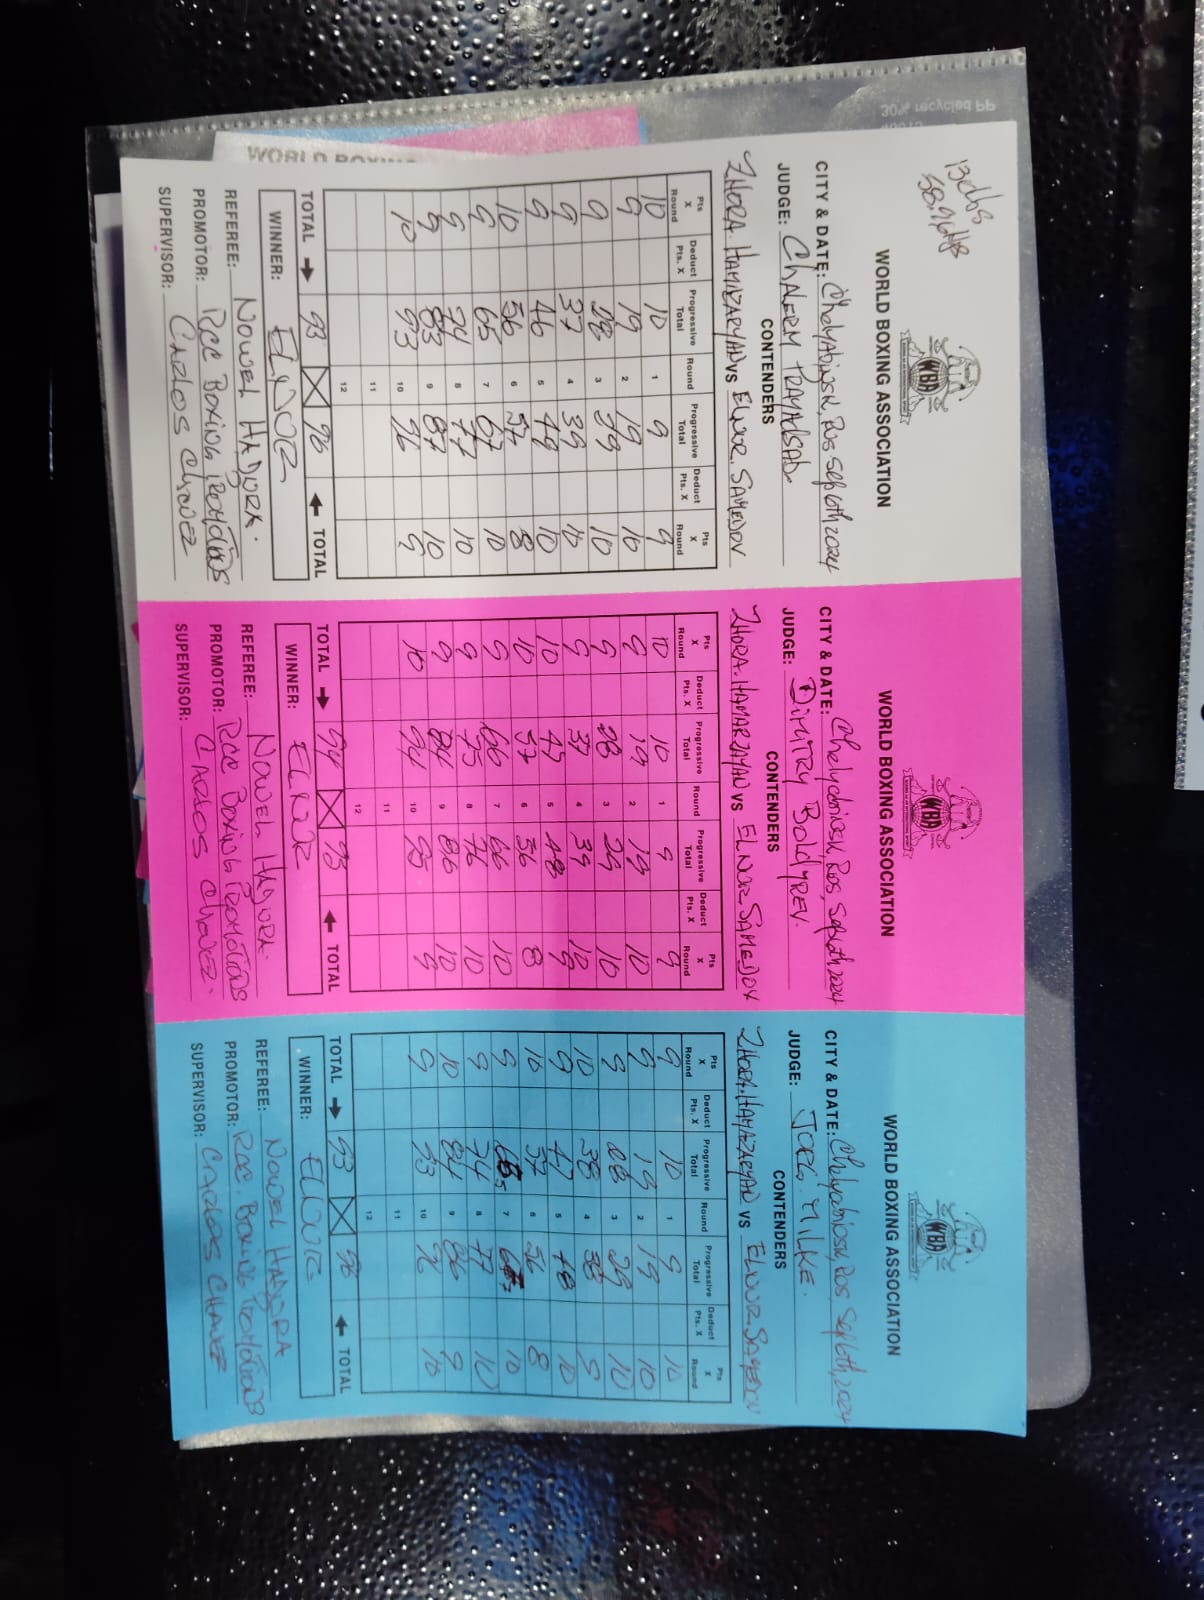 99 belcycer %0E
WORLD BOXING
WORLD BOXING ASSOCIATION
WBA
CITY & DATE: Chelyabinsk, Rus Sep 6th 2024
JUDGE: CHALERM PRAYADSAB
CONTENDERS
ZHORA. HAMAZARYAN VS ELNUR. SAMEDOV
Pts X Round Deduct Pts. X Progressive Total Round Progressive Total Deduct Pts. X Pts X Round
10 10 1 9 9
9 19 2 19 10
9 28 3 29 10
9 37 4 39 10
9 46 5 49 10
10 56 6 57 8
9 65 7 67 10
9 74 8 77 10
9 83 9 87 10
10 93 10 96 9
11
12
TOTAL → 93 96 ← TOTAL
WINNER: ELNUR
REFEREE: Nowel HADJIRA.
PROMOTOR: RCC BOXING PROMOTIONS
SUPERVISOR: CARLOS CHAVEZ
WORLD BOXING ASSOCIATION
WBA
CITY & DATE: Chelyabinsk, Rus, Sep 6th 2024
JUDGE: DIMITRY BOLDYREV.
CONTENDERS
ZHORA. HAMARZAYAN VS ELNUR. SAMEDOV
Pts X Round Deduct Pts. X Progressive Total Round Progressive Total Deduct Pts. X Pts X Round
10 10 1 9 9
9 19 2 19 10
9 28 3 29 10
9 37 4 39 10
10 47 5 48 9
10 57 6 56 8
9 66 7 66 10
9 75 8 76 10
9 84 9 86 10
10 94 10 95 9
11
12
TOTAL → 94 95 ← TOTAL
WINNER: ELNUR
REFEREE: Nowel HADJIRA.
PROMOTOR: RCC BOXING PROMOTIONS
SUPERVISOR: CARLOS CHAVEZ.
WORLD BOXING ASSOCIATION
WBA
CITY & DATE: Chelyabinsk, Rus Sep 6th, 2024
JUDGE: JOERG. MILKE.
CONTENDERS
ZHORA. HAMAZARYAN VS ELNUR. SAMEDOV
Pts X Round Deduct Pts. X Progressive Total Round Progressive Total Deduct Pts. X Pts X Round
9 10 1 9 10
9 19 2 19 10
9 28 3 29 10
10 38 4 38 9
9 47 5 48 10
10 57 6 56 8
9 7 10
9 74 8 77 10
10 84 9 86 9
9 93 10 96 10
11
12
TOTAL → 93 96 ← TOTAL
WINNER: ELNUR
REFEREE: Nowel HADJIRA
PROMOTOR: RCC. BOXING PROMOTIONS
SUPERVISOR: CARLOS CHAVEZ